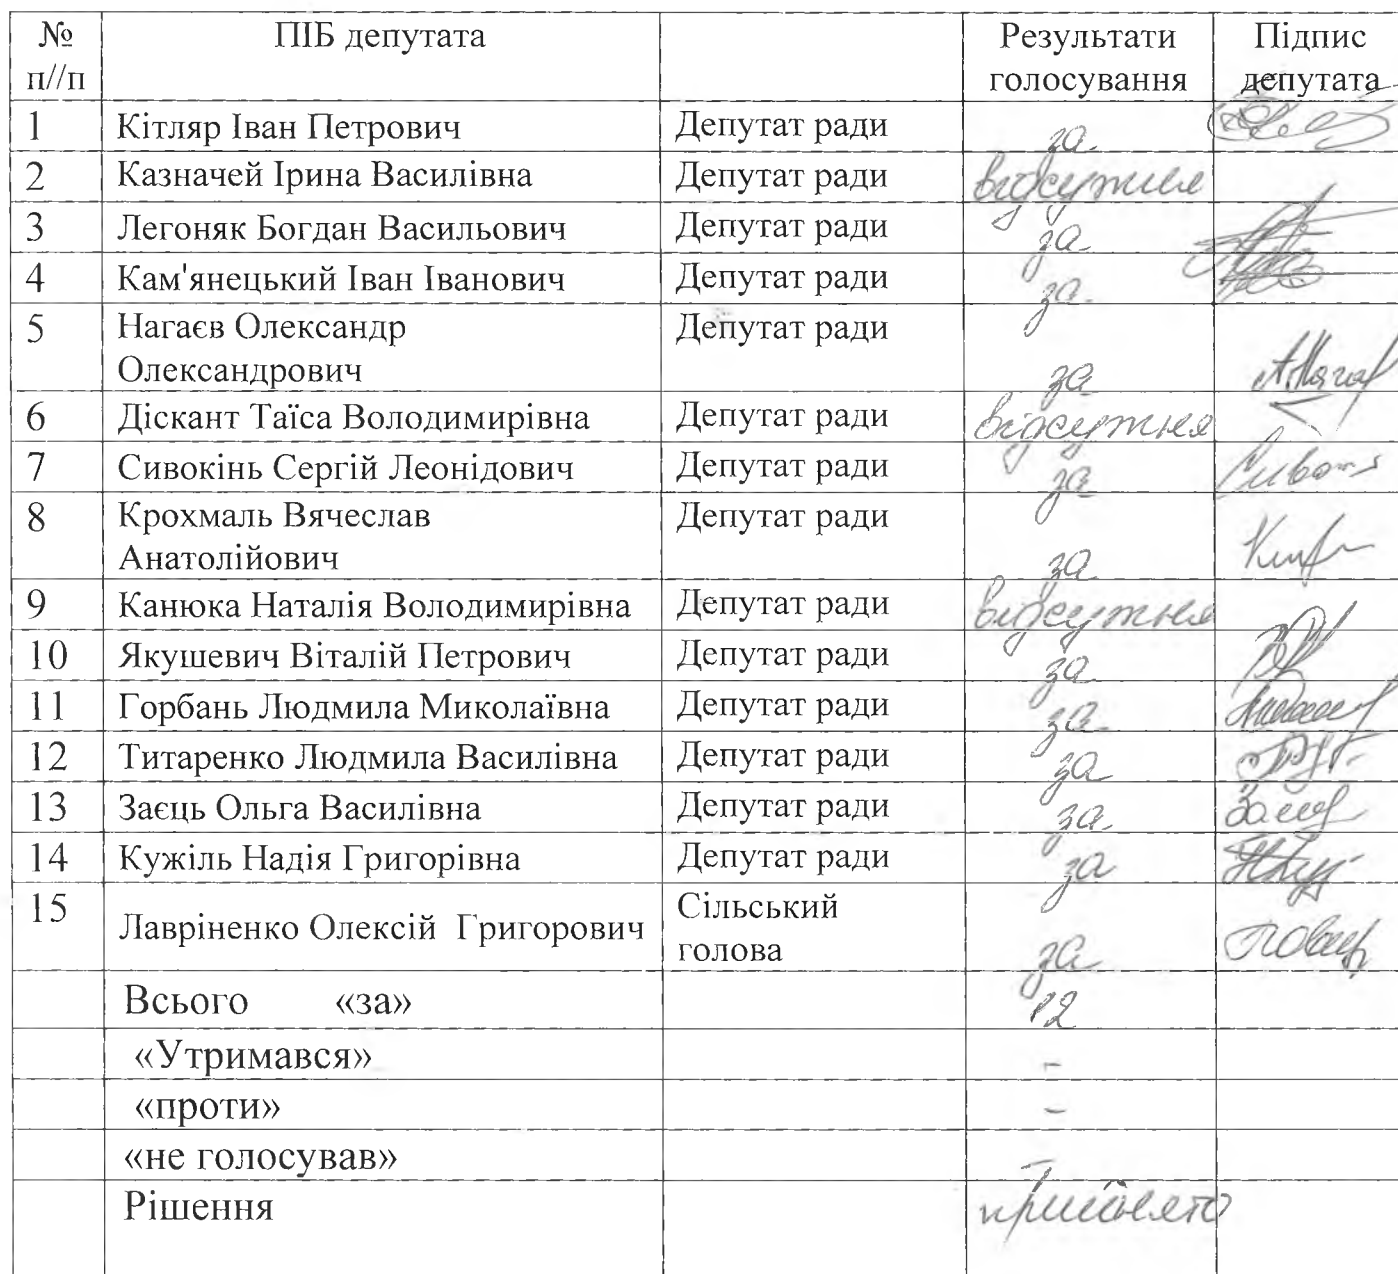 № п//п ПІБ депутата Результати голосування Підпис депутата
1 Кітляр Іван Петрович Депутат ради за
2 Казначей Ірина Василівна Депутат ради відсутня
3 Легоняк Богдан Васильович Депутат ради за
4 Кам'янецький Іван Іванович Депутат ради за
5 Нагаєв Олександр Олександрович Депутат ради за
6 Діскант Таїса Володимирівна Депутат ради відсутня
7 Сивокінь Сергій Леонідович Депутат ради за
8 Крохмаль Вячеслав Анатолійович Депутат ради за
9 Канюка Наталія Володимирівна Депутат ради відсутня
10 Якушевич Віталій Петрович Депутат ради за
11 Горбань Людмила Миколаївна Депутат ради за
12 Титаренко Людмила Василівна Депутат ради за
13 Заєць Ольга Василівна Депутат ради за
14 Кужіль Надія Григорівна Депутат ради за
15 Лавріненко Олексій Григорович Сільський голова за
Всього «за» 12
«Утримався» -
«проти» -
«не голосував»
Рішення прийнято